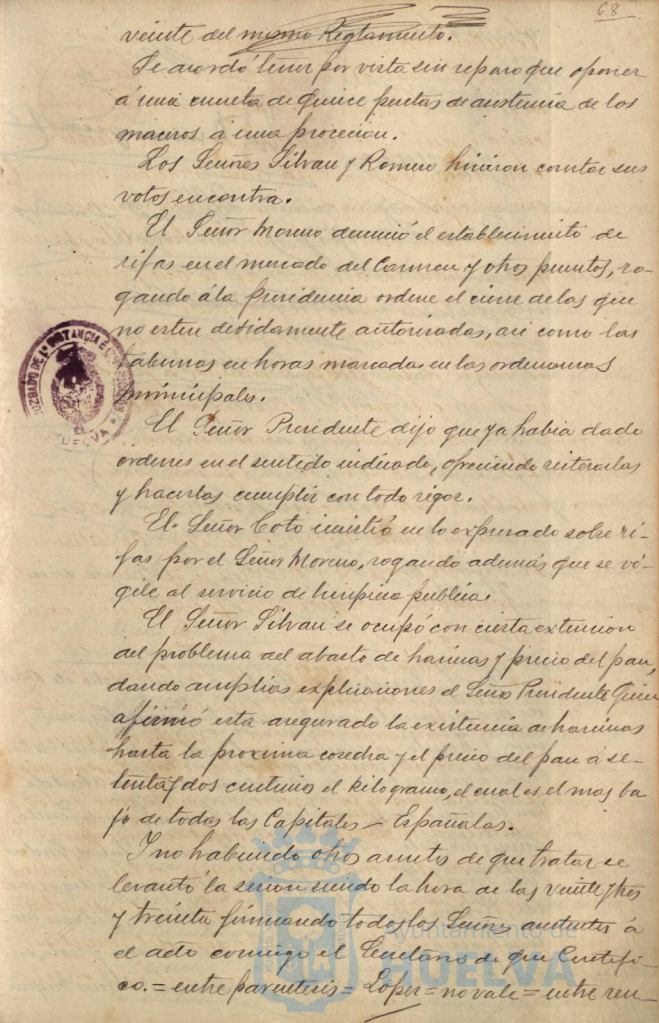 68
veinte del mismo Reglamento.
Se acordó tener por vista sin reparo que oponer
á una cuneta de Quince pesetas de asistencia de los
maceros á una procecion.
Los Señores Silvan y Romero hicieron constar sus
votos en contra.
El Señor Moreno denunció el establecimiento de
rifas en el mercado del Carmen y otros puntos, ro-
gando á la Presidencia ordene el cierre de las que
no esten debidamente autorizadas, asi como las
tabernas en horas marcadas en las ordenanzas
municipales.
El Señor Presidente dijo que ya habia dado
ordenes en el sentido indicado, ofreciendo reiterarlas
y hacerlas cumplir con todo rigor.
El Señor Coto insistió en lo expresado sobre ri-
fas por el Señor Moreno, rogando además que se vi-
gile al servicio de limpieza publica.
El Señor Silvan se ocupó con cierta extencion
del problema del abasto de harinas y precio del pan,
dando amplias explicaciones el Señor Presidente Quien
afirmó esta asegurado la existencia de harinas
hasta la proxima cosecha y el precio del pan á se-
tenta y dos centimos el kilogramo, el cual es el mas ba
jo de todas las Capitales - Españolas.
Y no habiendo otros asuntos de que tratar se
levantó la sesion siendo la hora de las veinte y tres
y treinta firmando todos los Señores asistentes á
el acto conmigo el Secretario de que Certifi-
co. = entre parentesis = Lopez = no vale = entre ren-
JUZGADO DE 1ª INSTANCIA E
HUELVA
Ayuntamiento de
HUELVA